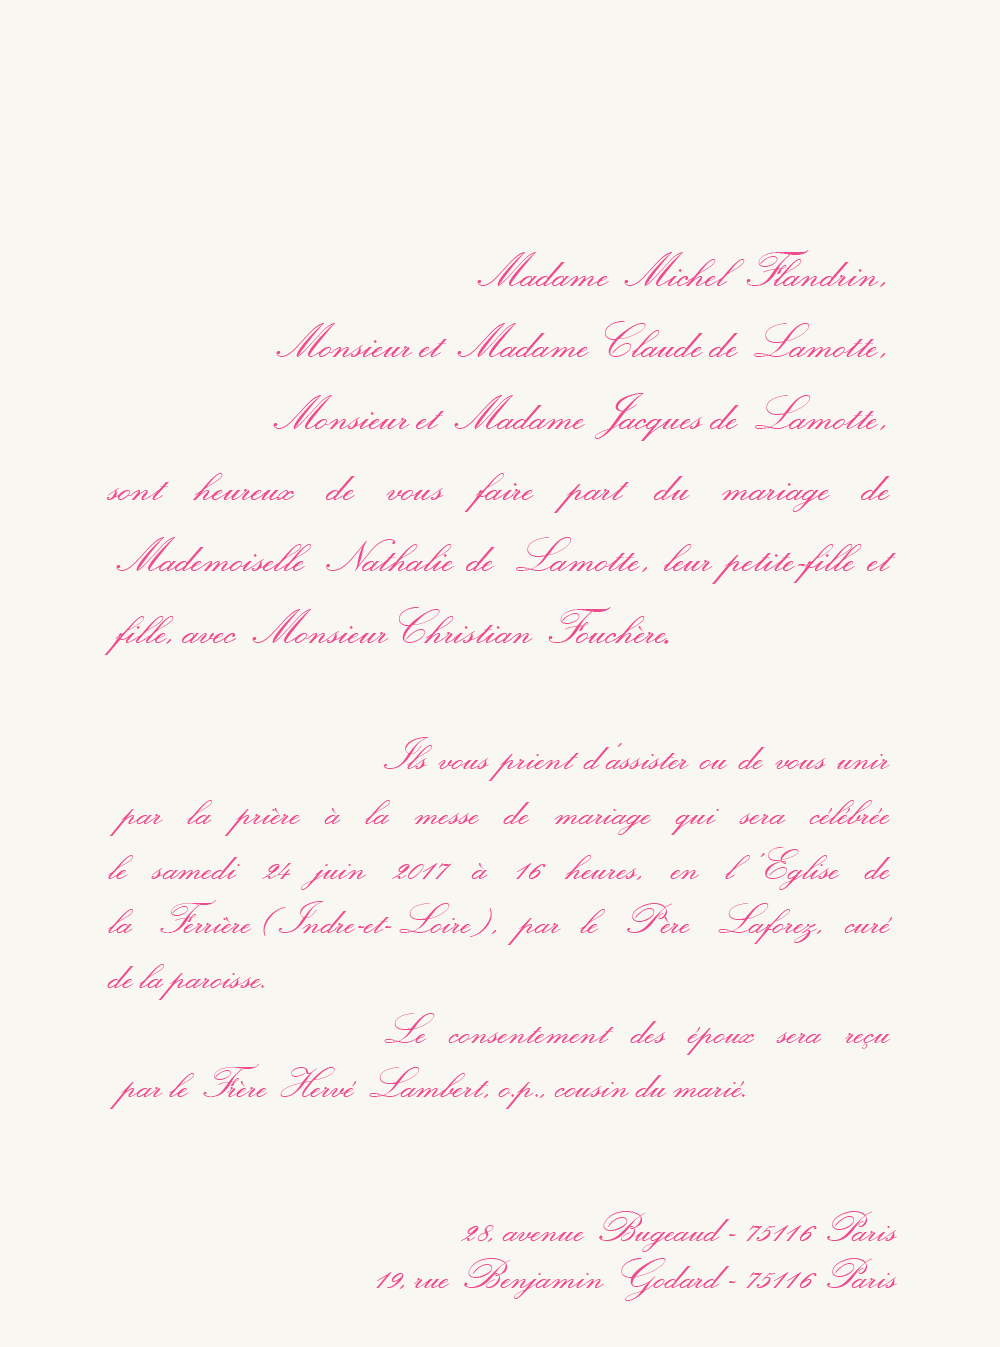 Madame Michel Flandrin,
Monsieur et Madame Claude de Lamotte,
Monsieur et Madame Jacques de Lamotte,
sont heureux de vous faire part du mariage de
Mademoiselle Nathalie de Lamotte, leur petite-fille et
fille, avec Monsieur Christian Fouchère.
Ils vous prient d'assister ou de vous unir
par la prière à la messe de mariage qui sera célébrée
le samedi 24 juin 2017 à 16 heures, en l'Eglise de
la Ferrière (Indre-et-Loire), par le Père Laforez, curé
de la paroisse.
Le consentement des époux sera reçu
par le Frère Hervé Lambert, o.p., cousin du marié.
28, avenue Bugeaud - 75116 Paris
19, rue Benjamin Godard - 75116 Paris